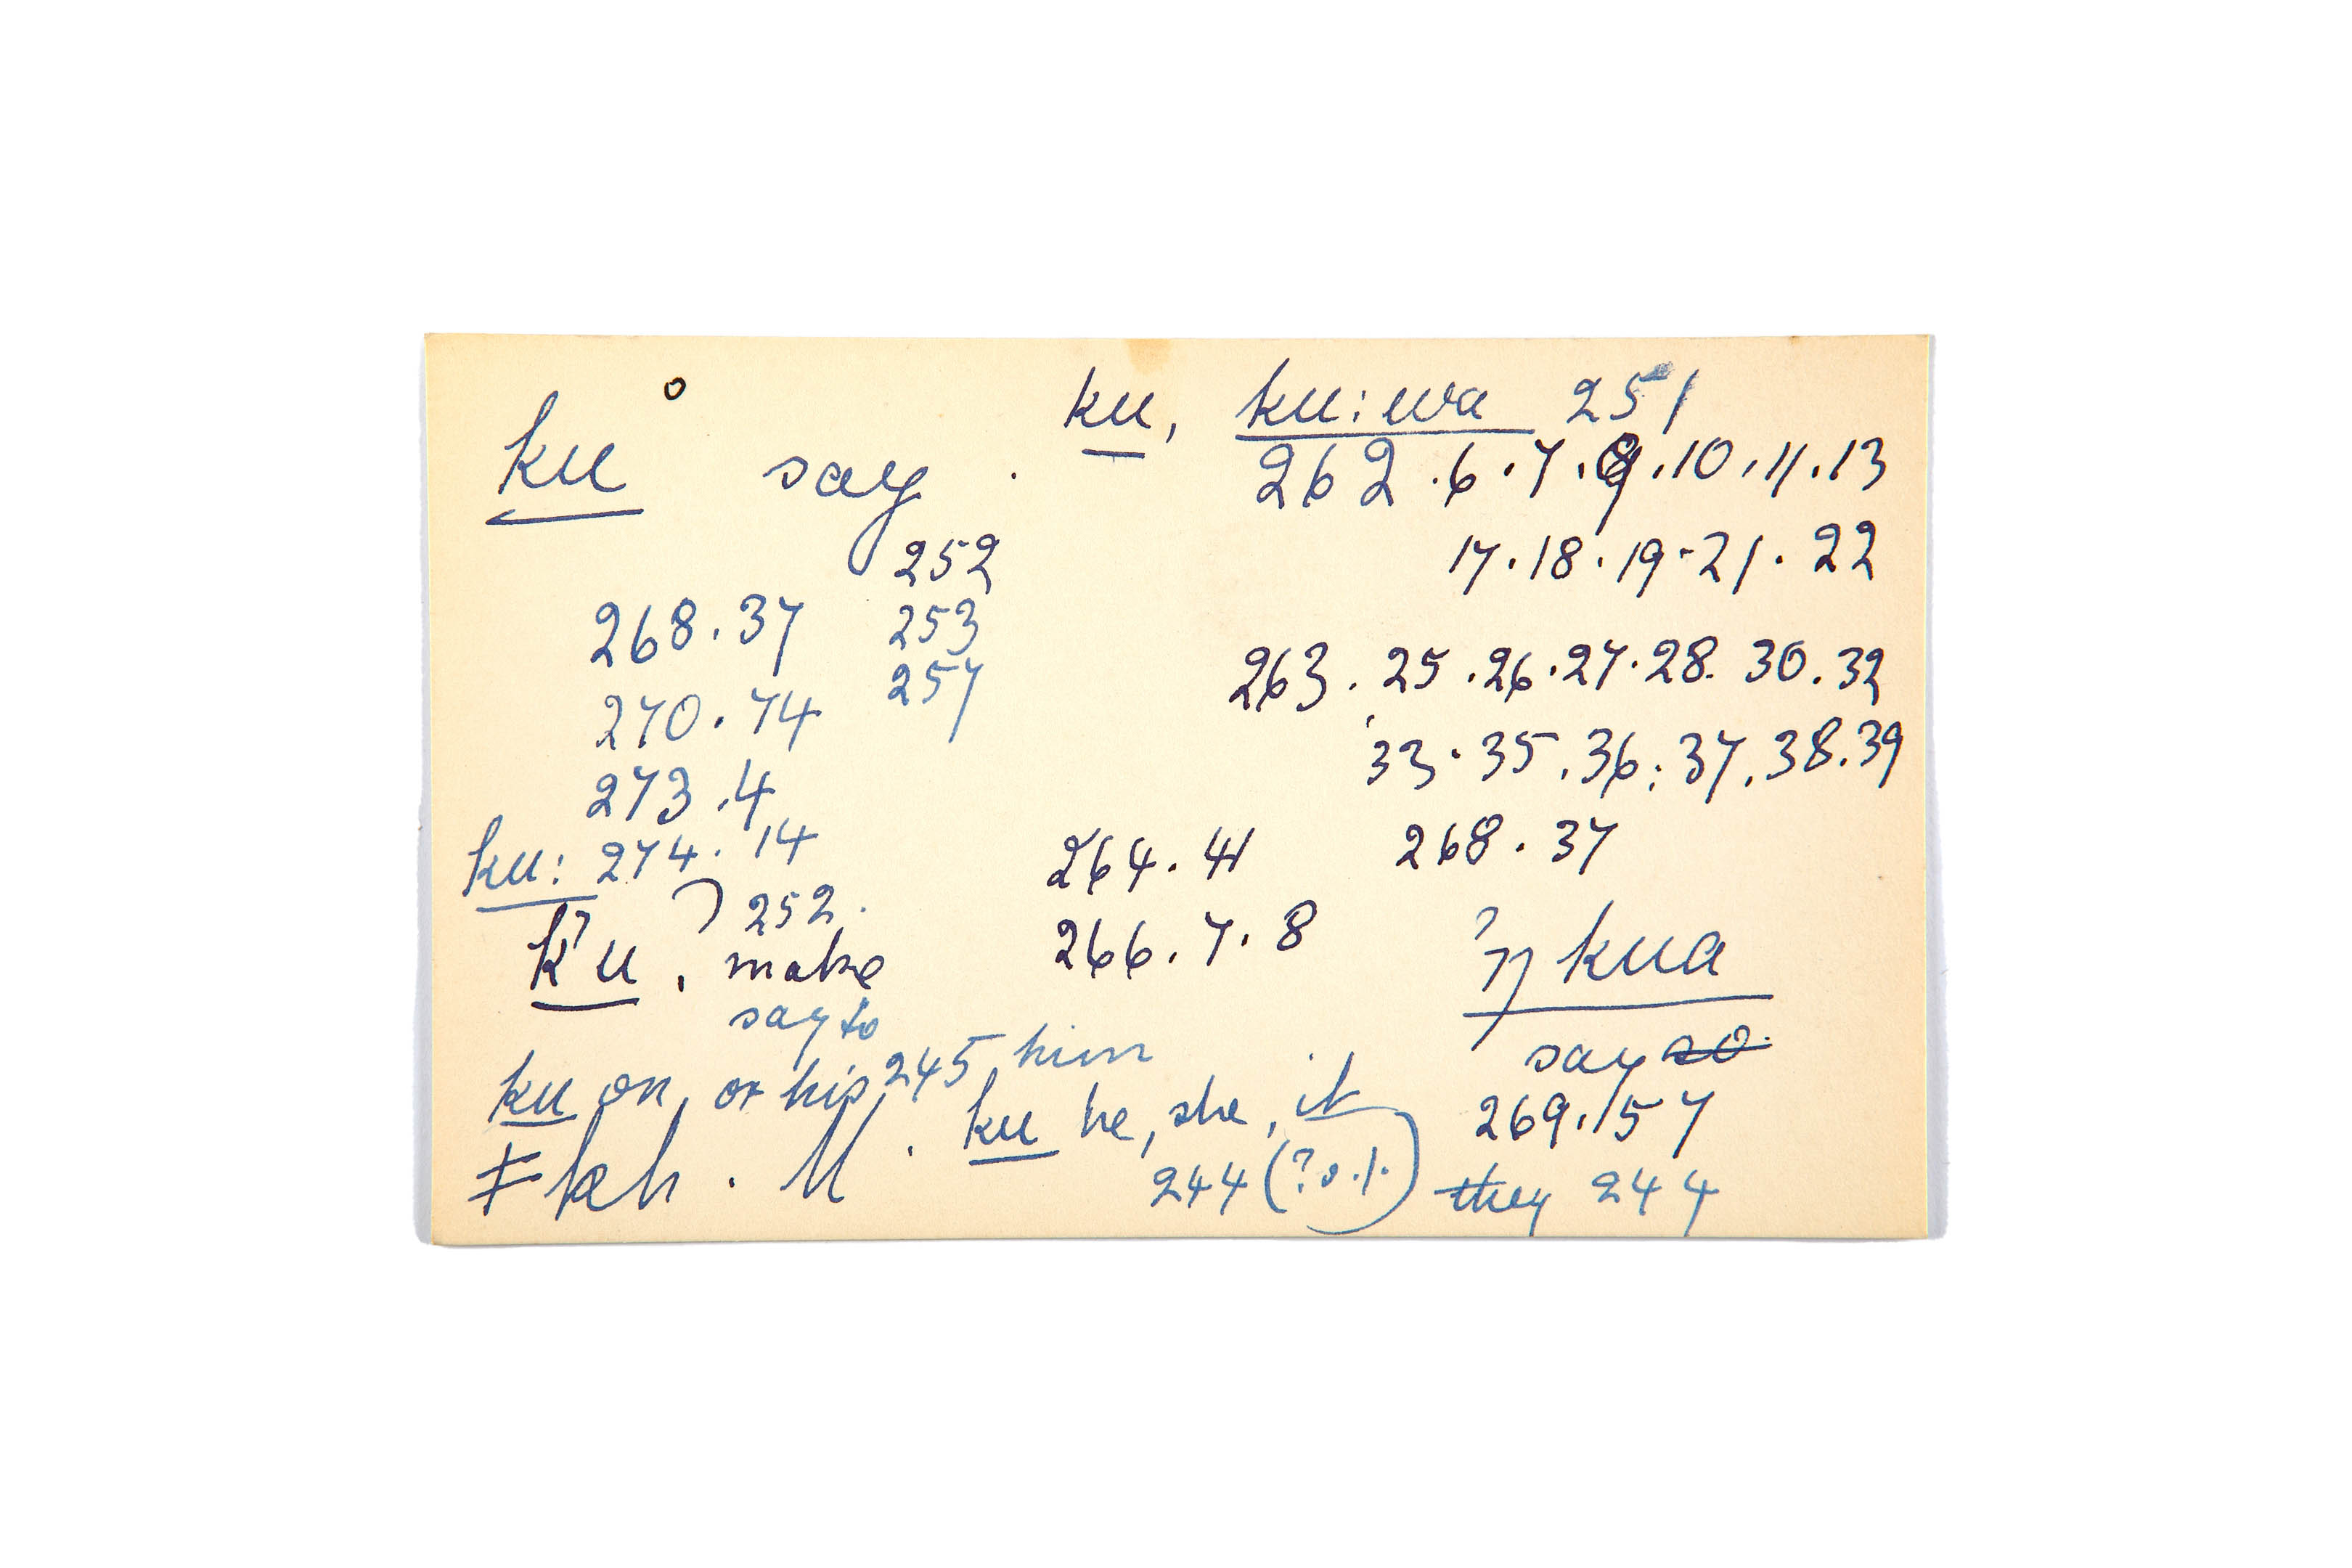 ku say . ku, ku:wa 251
262 .6.7.9.10.11.13
252
17.18.19.21.22
268.37 253
257
263. 25.26.27.28. 30.32
270.74
33.35.36.37.38.39
273.4
ku: 274.14
264.41 268.37
252.
k'u, make
266.7.8
ŋkua
say to
say so.
ku on, or his 245 him
ku he, she, it
269.157
ǂkh.
244 (?s.) they 244